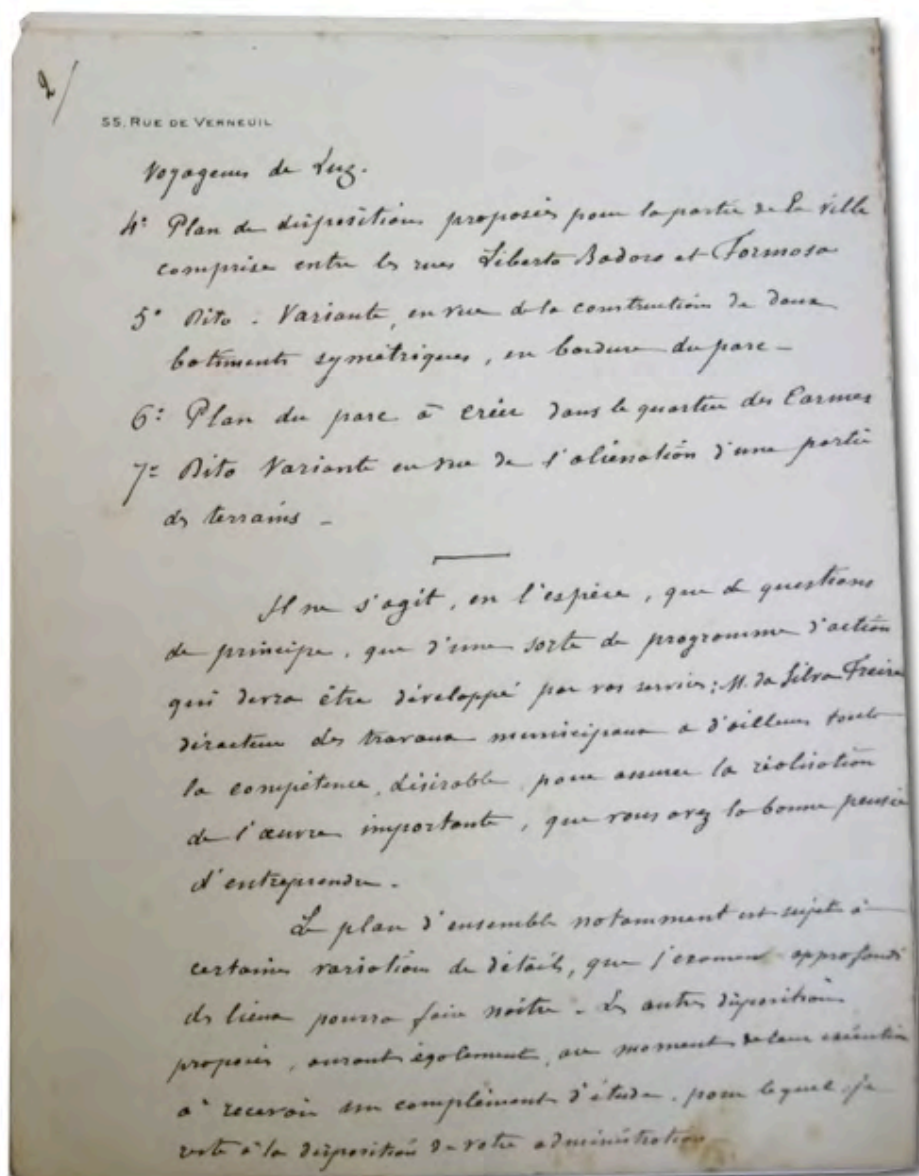 2/
55, RUE DE VERNEUIL
Voyageurs de Luz.
4° Plan de dispositions proposées pour la partie de la ville
comprise entre les rues Liberto Badoro et Formosa
5° Dito - Variante, en vue de la construction de deux
batiments symétriques, en bordure du parc -
6° Plan du parc à créer dans le quartier des Carmes
7° Dito Variante en vue de l'aliénation d'une partie
des terrains -
Il ne s'agit, en l'espèce, que de questions
de principe, que d'une sorte de programme d'action
qui devra être développé par vos services; M. da Silva Freire
directeur des travaux municipaux a d'ailleurs toute
la compétence désirable pour assurer la réalisation
de l'œuvre importante, que vous avez la bonne pensée
d'entreprendre.
Le plan d'ensemble notamment est sujet à
certaines variations de détails, que l'examen approfondi
des lieux pourra faire naître - Les autres dispositions
proposées, auront également, au moment de leur exécution
à recevoir un complément d'étude, pour lequel je
reste à la disposition de votre administration -